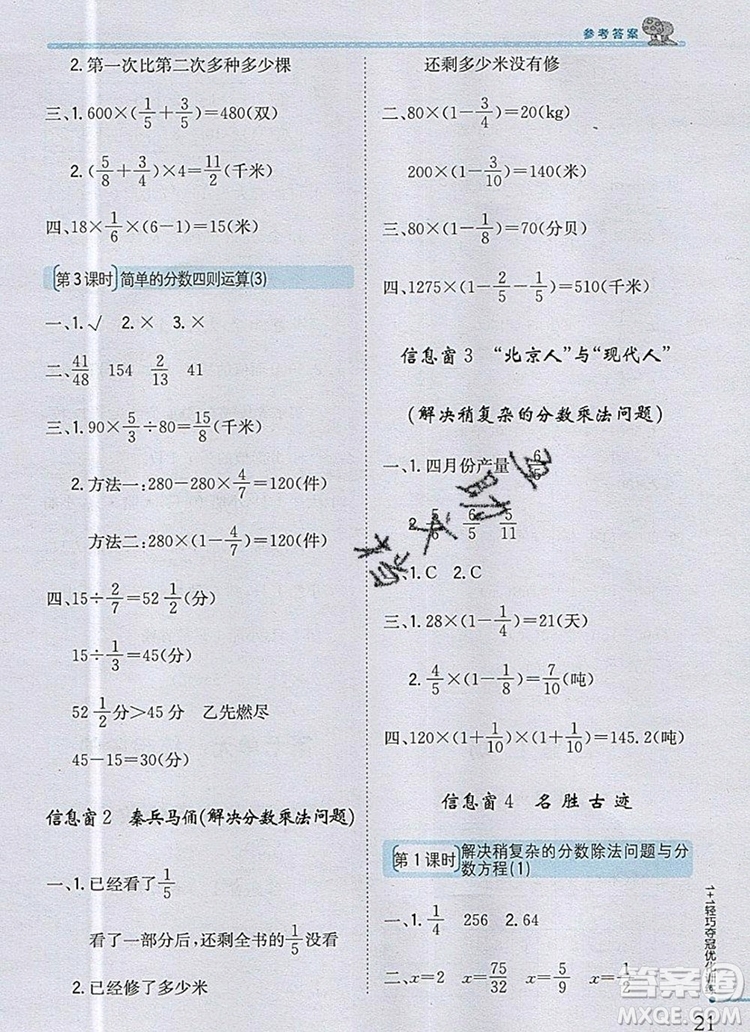 参考答案
2. 第一次比第二次多种多少棵
三、1. 600×(1/5+3/5)=480(双)
2. (5/8+3/4)×4=11/2(千米)
四、18×1/6×(6-1)=15(米)
第3课时 简单的分数四则运算(3)
一、1. √ 2. × 3. ×
二、41/48 154 2/13 41
三、1. 90×5/3÷80=15/8(千米)
2. 方法一:280-280×4/7=120(件)
方法二:280×(1-4/7)=120(件)
四、15÷2/7=52 1/2(分)
15÷1/3=45(分)
52 1/2分>45分 乙先燃尽
45-15=30(分)
信息窗2 秦兵马俑(解决分数乘法问题)
一、1. 已经看了1/5
看了一部分后,还剩全书的1/5没有看
2. 已经修了多少米
还剩多少米没有修
二、80×(1-3/4)=20(kg)
200×(1-3/10)=140(米)
三、80×(1-1/8)=70(分贝)
四、1275×(1-2/5-1/5)=510(千米)
信息窗3 “北京人”与“现代人”
(解决稍复杂的分数乘法问题)
一、1. 四月份产量 6/5
2. 5/6 6/5 5/11
二、1. C 2. C
三、1. 28×(1-1/4)=21(天)
2. 4/5×(1-1/8)=7/10(吨)
四、120×(1+1/10)×(1+1/10)=145.2(吨)
信息窗4 名胜古迹
第1课时 解决稍复杂的分数除法问题与分
数方程(1)
一、1. 1/4 256 2. 64
二、x=2 x=75/32 x=5/9 x=3
1+1轻巧夺冠优化训练
21
答案圈
MXQE.COM